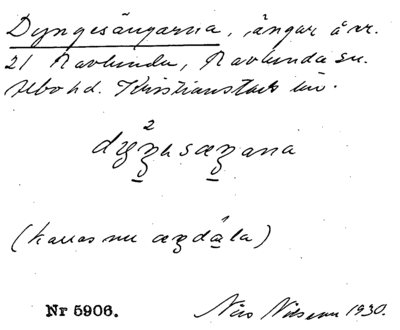 Dyngesängarna, ängar å nr.
21 Ravlunda, Ravlunda sn.
Albo hd. Kristianstads län.
2
(kallas nu
Nr 5906. Nils Nilsson 1930.